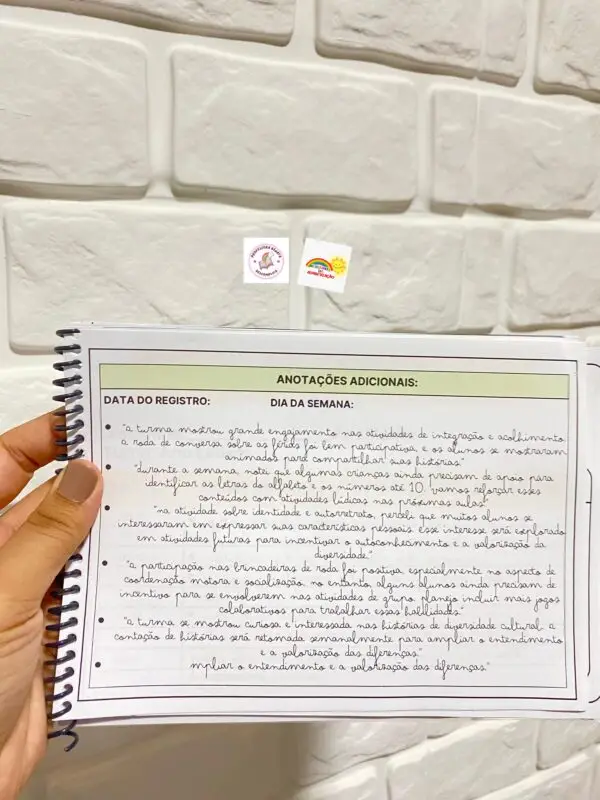 ANOTAÇÕES ADICIONAIS:
DATA DO REGISTRO: DIA DA SEMANA:
• "a turma mostrou grande engajamento nas atividades de integração e acolhimento.
a roda de conversa sobre as férias foi bem participativa, e os alunos se mostraram
animados para compartilhar suas histórias."
• "durante a semana, notei que algumas crianças ainda precisam de apoio para
identificar as letras do alfabeto e os números até 10. vamos reforçar esses
conteúdos com atividades lúdicas nas próximas aulas."
• "na atividade sobre identidade e autorretrato, percebi que muitos alunos se
interessaram em expressar suas características pessoais. esse interesse será explorado
em atividades futuras para incentivar o autoconhecimento e a valorização da
diversidade."
• "a participação nas brincadeiras de roda foi positiva, especialmente no aspecto de
coordenação motora e socialização. no entanto, alguns alunos ainda precisam de
incentivo para se envolverem nas atividades de grupo. planejo incluir mais jogos
colaborativos para trabalhar essas habilidades."
• "a turma se mostrou curiosa e interessada nas histórias de diversidade cultural. a
contação de histórias será retomada semanalmente para ampliar o entendimento
e a valorização das diferenças."
• mpliar o entendimento e a valorização das diferenças."